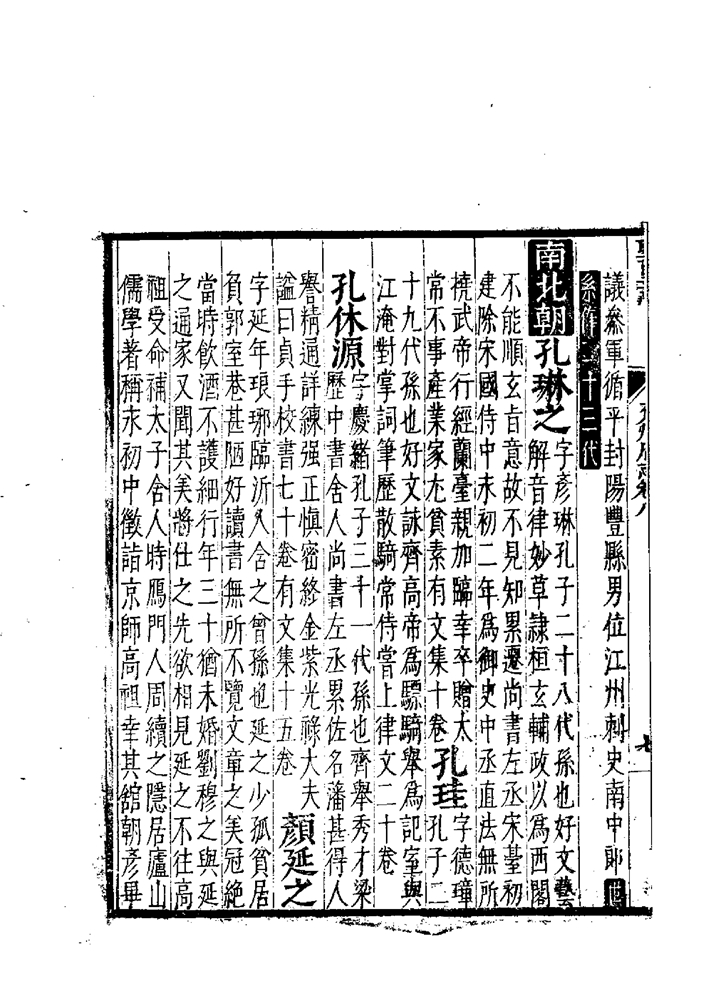 議叅軍循平封陽豐縣男位江州刺史南中郎世
系作二十三代
南北朝孔琳之字彦琳孔子二十八代孫也好文藝
解音律妙草隷桓玄輔政以為西閣
不能順玄旨意故不見知累遷尚書左丞宋臺初
建除宋國侍中永初二年為御史中丞直法無所
撓武帝行經蘭臺親加臨幸卒贈太
常不事產業家尤貧素有文集十卷孔珪字德璋
孔子二
十九代孫也好文詠齊高帝為驃騎舉為記室與
江淹對掌詞筆歷散騎常侍嘗上律文二十卷
孔休源字慶緒孔子三十一代孫也齊舉秀才梁
歷中書舍人尚書左丞累佐名藩甚得人
譽精通詳練强正慎密終金紫光祿大夫
諡曰貞手校書七十卷有文集十五卷顏延之
字延年琅琊臨沂人含之曾孫也延之少孤貧居
負郭室巷甚陋好讀書無所不覽文章之美冠絶
當時飲酒不護細行年三十猶未婚劉穆之與延
之通家又聞其美將仕之先欲相見延之不往高
祖受命補太子舍人時鴈門人周續之隱居廬山
儒學著稱永初中徵詣京師高祖幸其舘朝彦畢